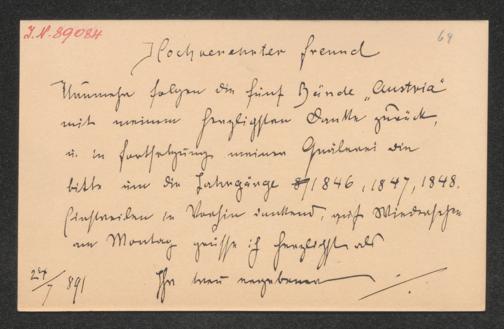 J.N. 89084
69
Hochverehrter Freund
Nunmehr folgen die fünf Bände „Austria“
mit meinem herzlichsten Danke zurück,
u. in Fortsetzung meiner Quälerei die
bitte um die Jahrgänge 1846, 1847, 1848.
Einstweilen in Vorhin dankend, auf Wiedersehn
am Montag grüsse ich herzlichst als
24/7 891 Ihr treu ergebener